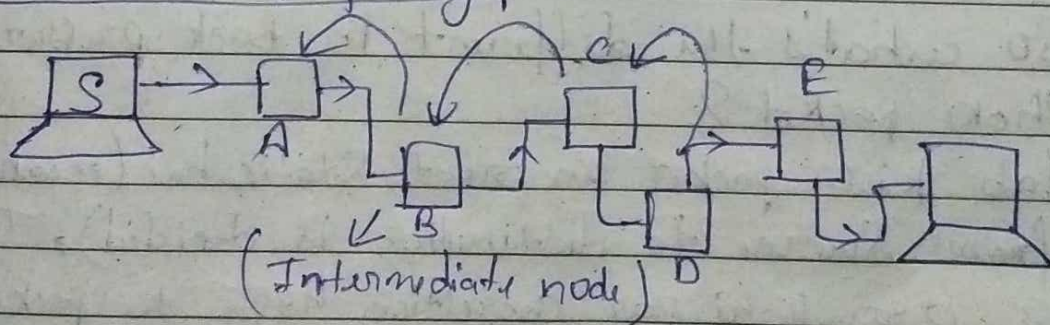 S
A
B
C
D
E
(Intermediate node)